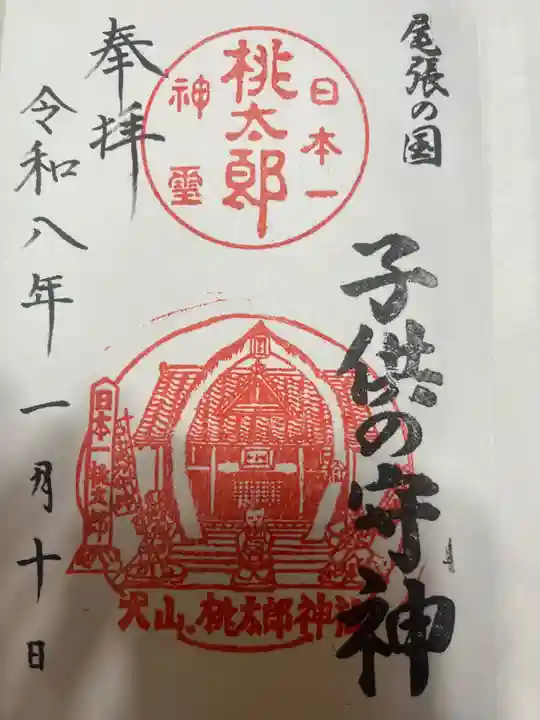 尾張の国
子供の守神
日本一
桃太郎
神霊
奉拝
令和八年一月十日
日本一桃太郎
犬山・桃太郎神社